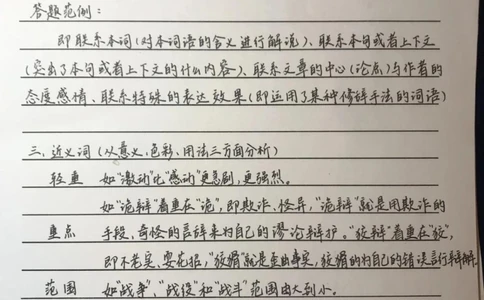 答题范例：
即联系本词(对本词语的含义进行解说)、联系本句或者上下文
(突出了本句或者上下文的什么内容)、联系文章的中心(论点)与作者的
态度感情、联系特殊的表达效果(即运用了某种修辞手法的词语)
三、近义词(从意义、色彩、用法三方面分析)
轻重 如"激动"比"感动"更急剧,更强烈。
如"诡辩"着重在"诡",即欺诈、怪异,"诡辩"就是用欺诈的
重点 手段、奇怪的言辞来为自己的谬论辩护。"狡辩"着重在"狡",
即不老实、耍花招,"狡辩"就是歪曲事实,狡猾的为自己的错误言行辩解
范围 如"战争"、"战役"和"战斗"范围由大到小。